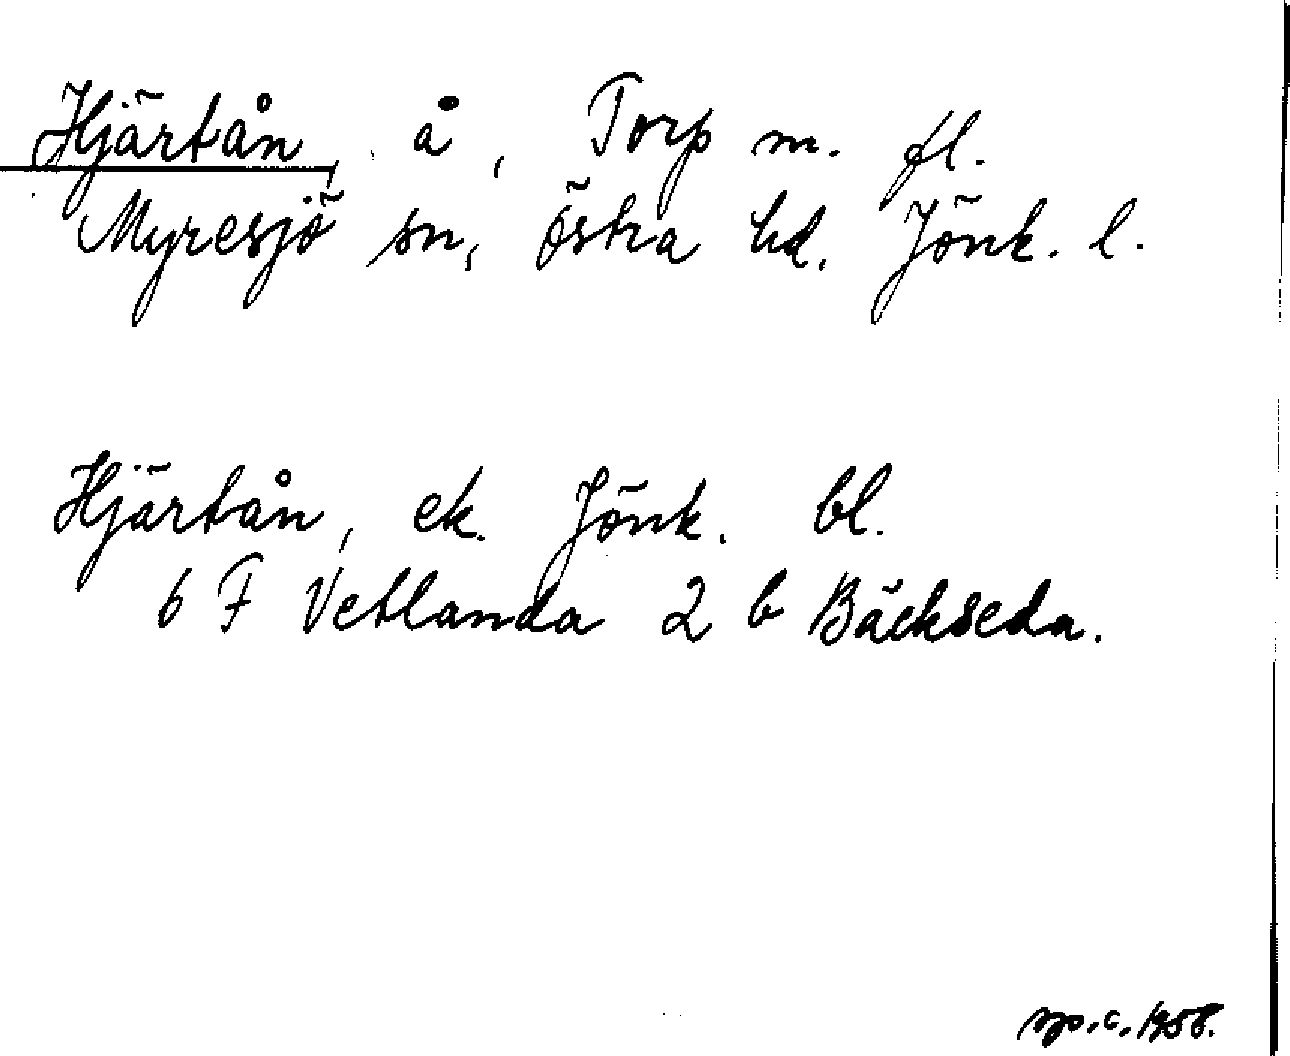 Hjärtån, å, Torp m. fl.
Myresjö sn, Östra hd. Jönk. l.
Hjärtån, ek. Jönk. bl.
6 F Vetlanda 2 b Bäckseda.
1958.